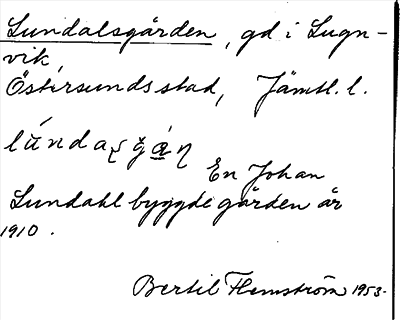 Lundalsgården, gd i Lugn-
vik,
Östersunds stad, Jämtl. l.
En Johan
Lundahl byggde gården år
1910.
Bertil Flemström 1953.